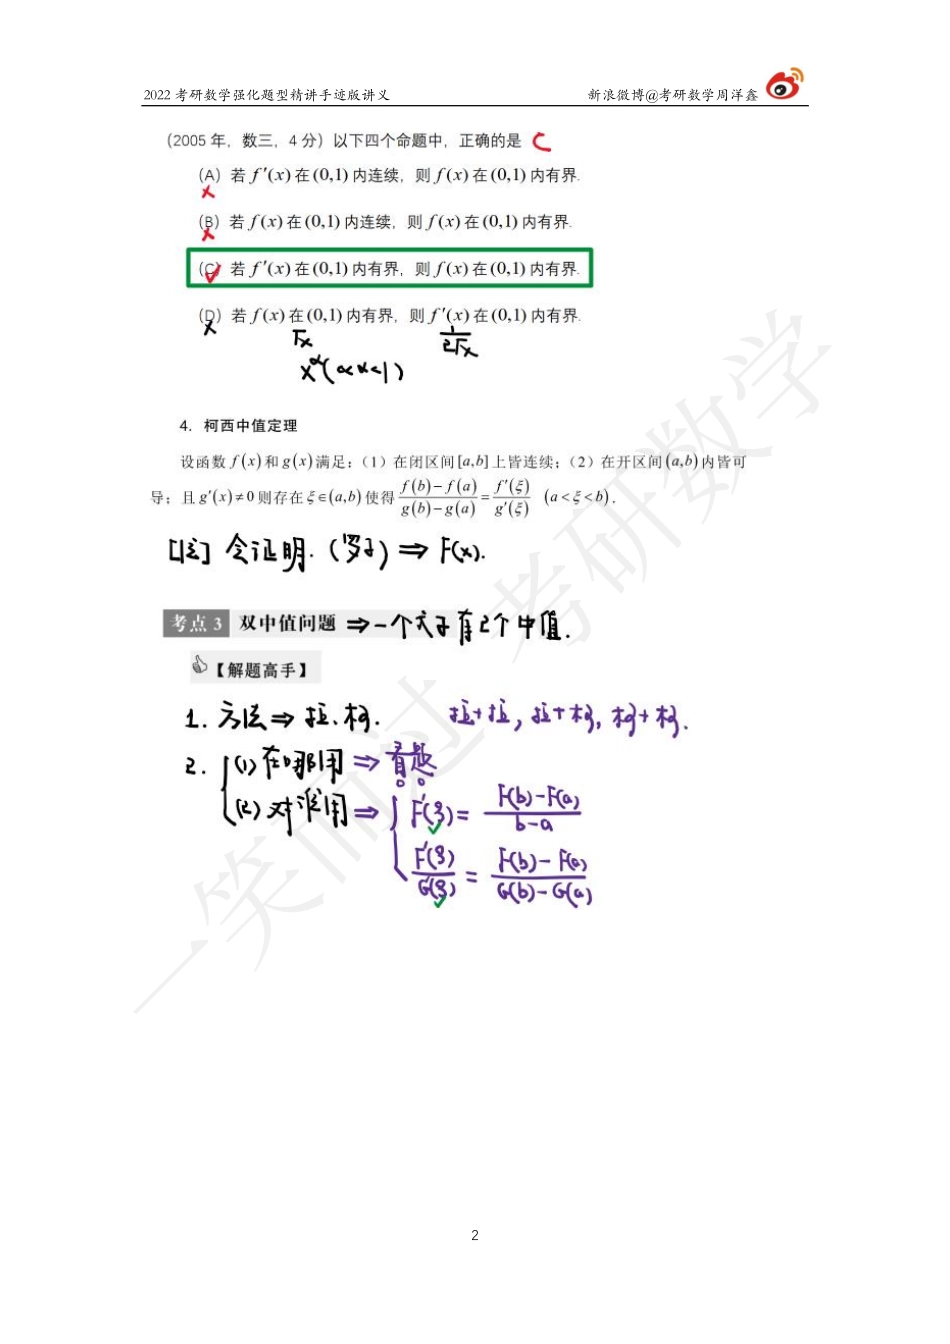 2022 考研数学强化题型精讲手迹版讲义 新浪微博@考研数学周洋鑫
(2005 年，数三，4 分) 以下四个命题中，正确的是 C
(A) 若 f′(x) 在 (0,1) 内连续，则 f(x) 在 (0,1) 内有界.
×
(B) 若 f(x) 在 (0,1) 内连续，则 f(x) 在 (0,1) 内有界.
×
(C) 若 f′(x) 在 (0,1) 内有界，则 f(x) 在 (0,1) 内有界.
(D) 若 f(x) 在 (0,1) 内有界，则 f′(x) 在 (0,1) 内有界.
×
√x 1/(2√x)
x^α(0<α<1)
4. 柯西中值定理
设函数 f(x) 和 g(x) 满足：(1) 在闭区间 [a,b] 上皆连续；(2) 在开区间 (a,b) 内皆可
导；且 g′(x)≠0 则存在 ξ∈(a,b) 使得 (f(b)−f(a))/(g(b)−g(a)) = f′(ξ)/g′(ξ) (a<ξ<b).
[注] 会证明. (罗子) ⇒ F(x).
考点 3 双中值问题 ⇒ 一个式子有2个中值.
【解题高手】
1. 方法 ⇒ 拉、柯. 拉+拉, 拉+柯, 柯+柯.
2. (1) 在哪用 ⇒ 看题
(2) 对谁用 ⇒ F′(ξ) = (F(b)−F(a))/(b−a)
F′(ξ)/G′(ξ) = (F(b)−F(a))/(G(b)−G(a))
一笑而过 考研数学
2